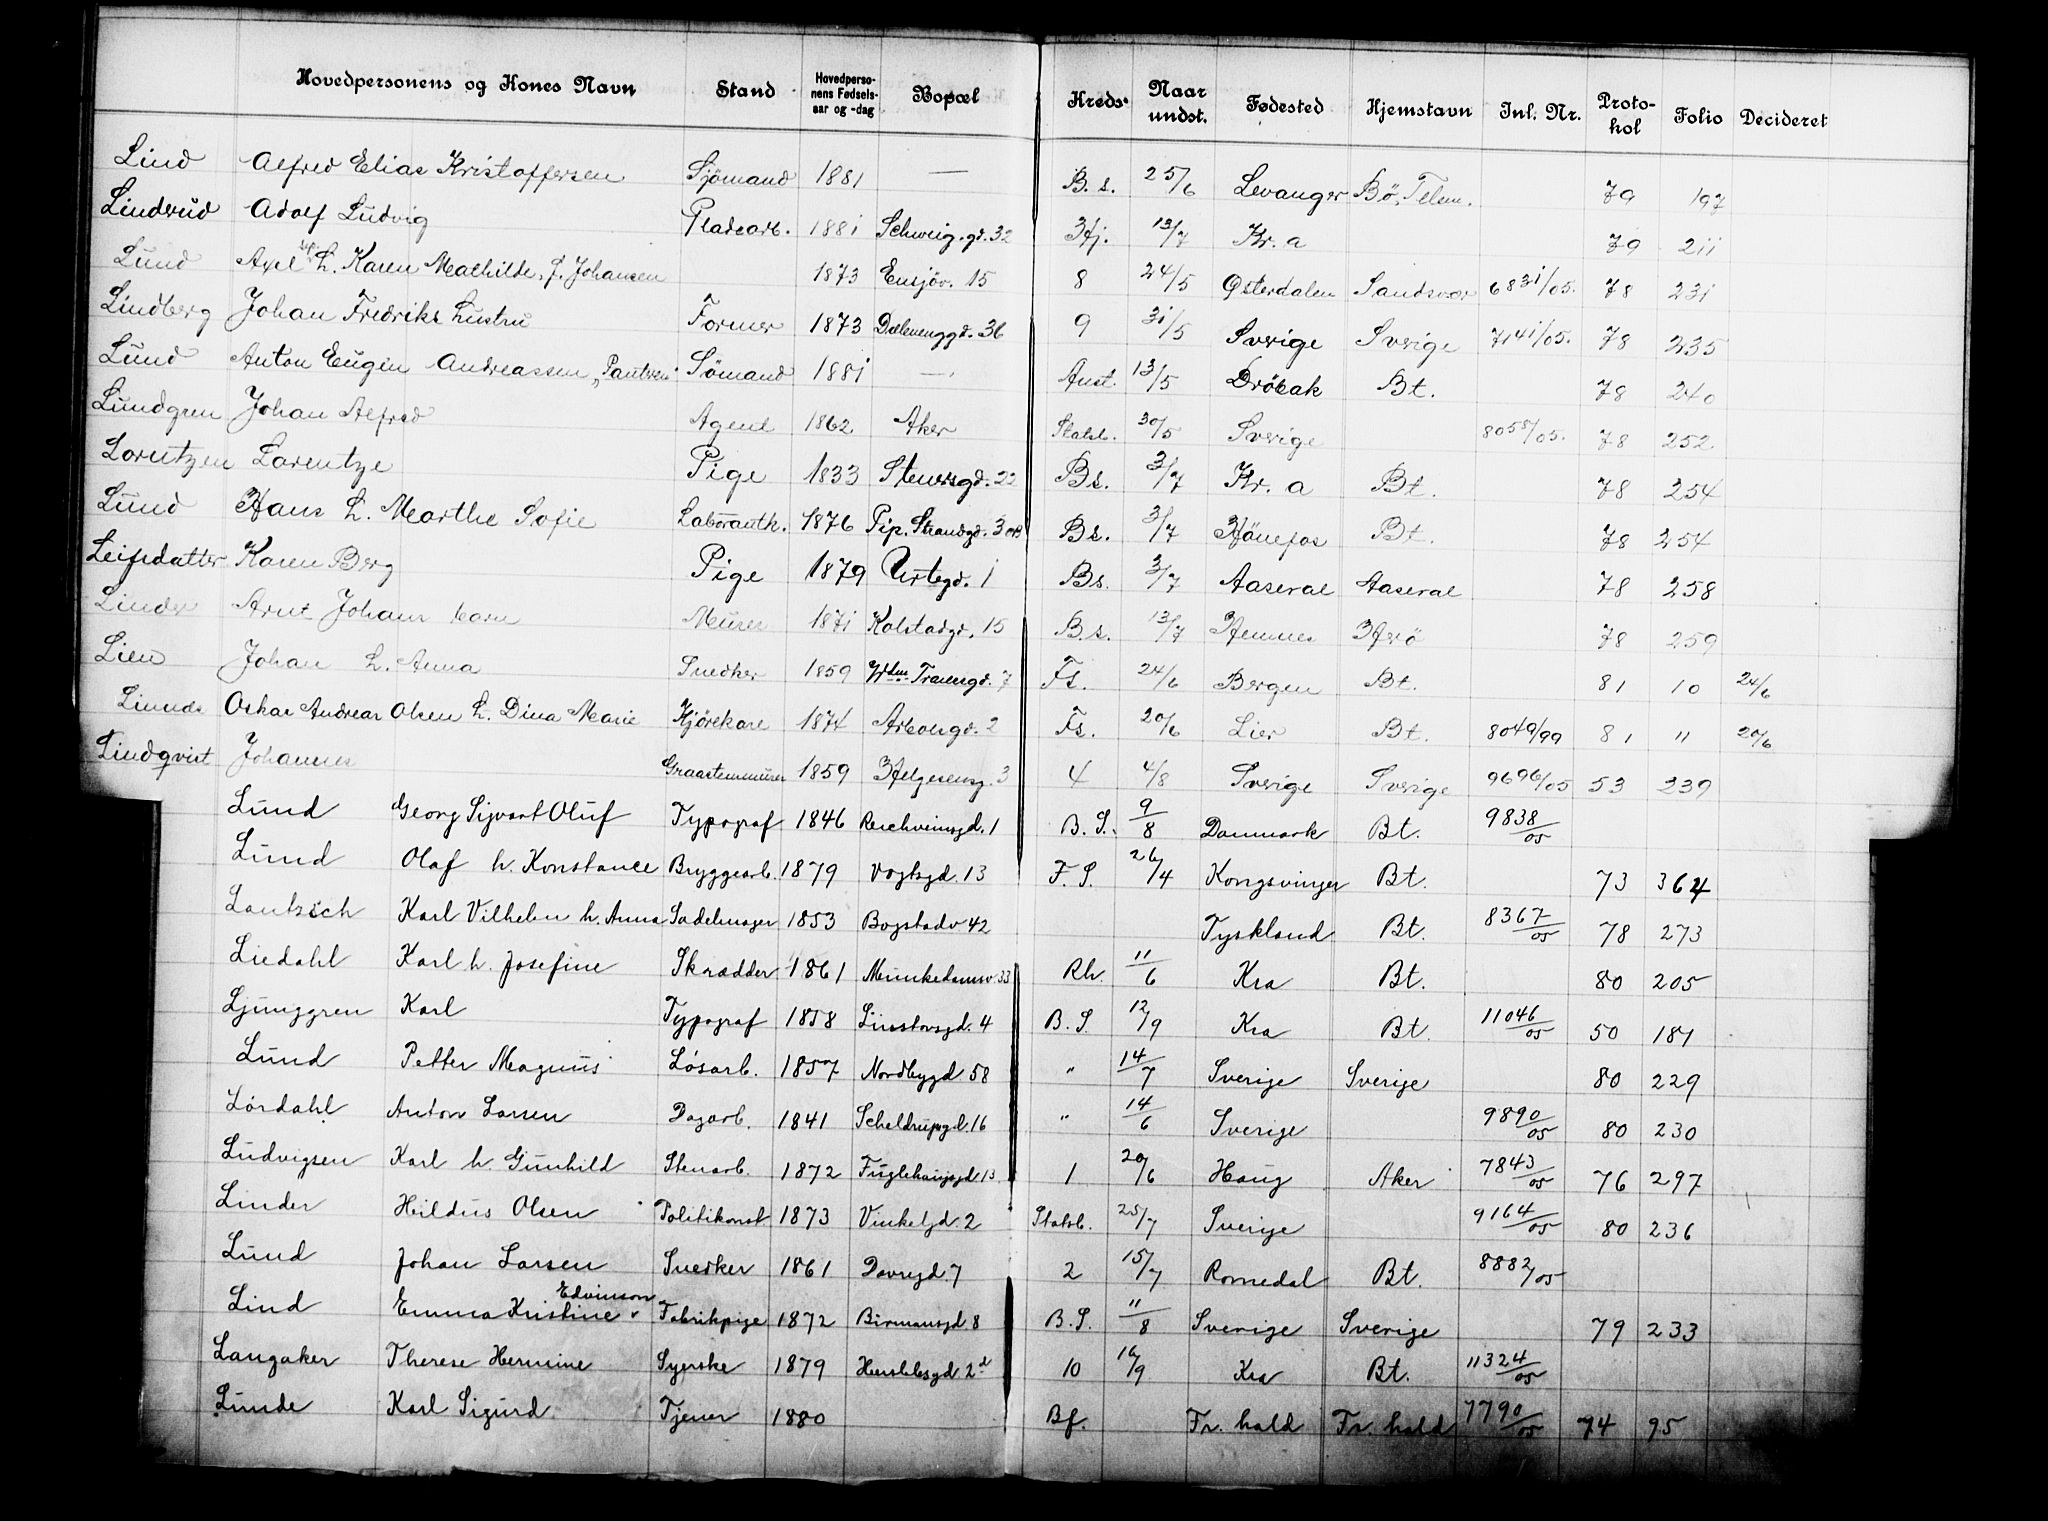 Hovedpersonens og Kones Navn Stand Hovedpersonens Fødselsaar og -dag Bopæl Kreds Naar undst. Fødested Hjemstavn Inl. Nr. Protokol Folio Decideret
Lind Alfred Elias Kristoffersen Sjömand 1881 — B. s. 25/6 Levanger Bö, Telem. 79 197
Linderud Adolf Ludvig Pladsarb. 1881 Schweig.gd. 32 Hj. 13/7 Kr. a 79 211
Lund Axel h. Karen Mathilde, f. Johansen 1873 Ensjöv. 15 8 24/5 Østerdalen Sandsvær 6831/05. 78 231
Lindberg Johan Fredriks Lustru Former 1873 Dælenenggd. 36 9 31/5 Sverige Sverige 7141/05. 78 235
Lund Anton Eugen Andreassen „Paulsen" Sömand 1881 — Anst. 13/5 Dröbak Bt. 78 240
Lundgren Johan Alfred Agent 1862 Aker Statsb. 30/5 Sverige 8058/05. 78 252
Lorentzen Larentze Pige 1833 Stenersgd. 22 Bs. 3/7 Kr. a Bt. 78 254
Lund Hans h. Marthe Sofie Laboranth. 1876 Pip. Strandgd. 3 Bs. 3/7 Hönefos Bt. 78 254
Leifsdatter Karen Berg Pige 1879 Urtegd. 1 Bs. 3/7 Aaseral Aaseral 78 258
Linder Arnt Johans Murer 1871 Kolstadgd. 15 B.s. 13/7 Hemnes 78 259
Lien Johan h. Anna Snedker 1859 Tranesgd. 7 Fs. 24/6 Bergen Bt. 81 10 24/6
Linnds Oskar Andreas Olsen h. Dina Marie Kjörekare 1874 Arboesgd. 2 Fs. 20/6 Lier Bt. 8049/99 81 11 20/6
Lindqvist Johannes Graastenmurer 1859 Helgesensg. 3 4 4/8 Sverige Sverige 9696/05 53 239
Lund Georg Sigvart Oluf Typograf 1846 Reichweinsgd. 1 B. S. 9/8 Danmark Bt. 9838/05
Lund Olaf h. Konstance Bryggearb. 1879 Vogtsgd. 13 F. S. 26/4 Kongsvinger Bt. 73 364
Karl Vilhelm h. Anna Sadelmager 1853 Bogstadv 42 Tyskland Bt. 8367/05 78 273
Liedahl Karl h. Josefine Skrædder 1861 Munkedamsv. 33 Rh. 11/6 Kra Bt. 80 205
Ljunggren Karl Typograf 1858 Linstowsgd. 4 B. S. 12/9 Kra Bt. 11046/05 50 181
Lund Petter Magnus Løsarb. 1857 Nordbygd 58 " 14/7 Sverige Sverige 80 229
Lördahl Anton Larsen Dagarb. 1841 Scheldrupsgd. 16 " 14/6 Sverige 9890/05 80 230
Ludvigsen Karl h. Gunhild Stenarb. 1872 Fuglehaugsgd 13 1 20/6 Haug Aker 7843/05 76 297
Linder Hildus Olsen Politikonst 1873 Vinkelgd. 2 Statsb. 25/7 Sverige 9164/05 80 236
Lund Johan Larsen Snedker 1861 Dovregd 7 2 15/7 Romedal Bt. 8882/05
Lind Emma Kristine Edvinson Fabrikpige 1872 Birmansgd 8 B. S. 11/8 Sverige Sverige 79 233
Langaker Therese Hermine Syerske 1879 Herslebsgd 2d 10 16/9 Kra Bt. 11324/05
Lunde Karl Sigurd Tjener 1880 Bf. Fr. hald Fr. hald 7790/05 74 95